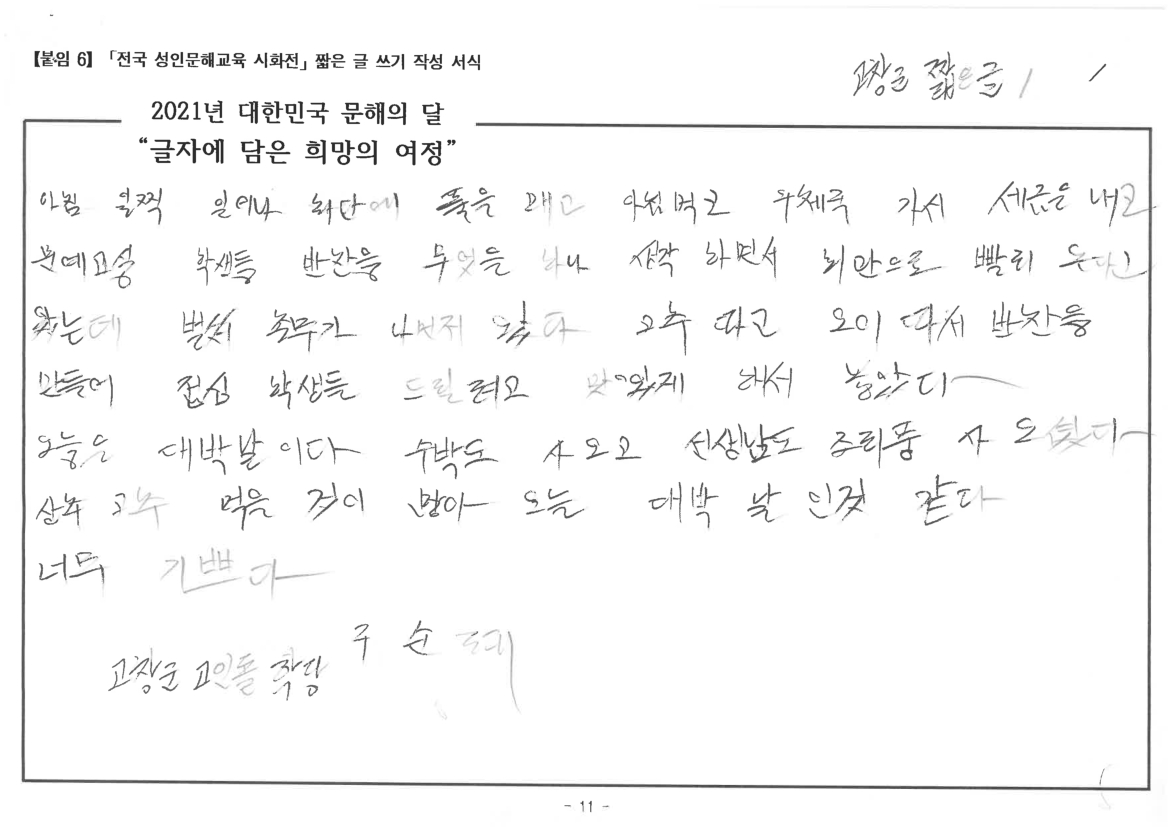 【붙임 6】 「전국 성인문해교육 시화전」 짧은 글 쓰기 작성 서식
고창군 짧은글 1
2021년 대한민국 문해의 달
“글자에 담은 희망의 여정”
아침 일찍 일어나 화단에 풀을 매고 아침먹고 우체국 가서 세금은 내고
문예교실 학생들 반찬을 무엇을 하나 생각 하면서 회관으로 빨리 온다고
왔는데 벌써 총무가 먼저 왔다 고추 따고 오이 따서 반찬을
만들어 점심 학생들 드릴려고 맛있게 해서 놓았다
오늘은 대박날이다 수박도 사오고 선생님도 조리퐁 사 오셨다
먹을 것이 많아 오늘 대박 날 인것 같다
너무 기쁘다
고창군 고인돌 학당
- 11 -